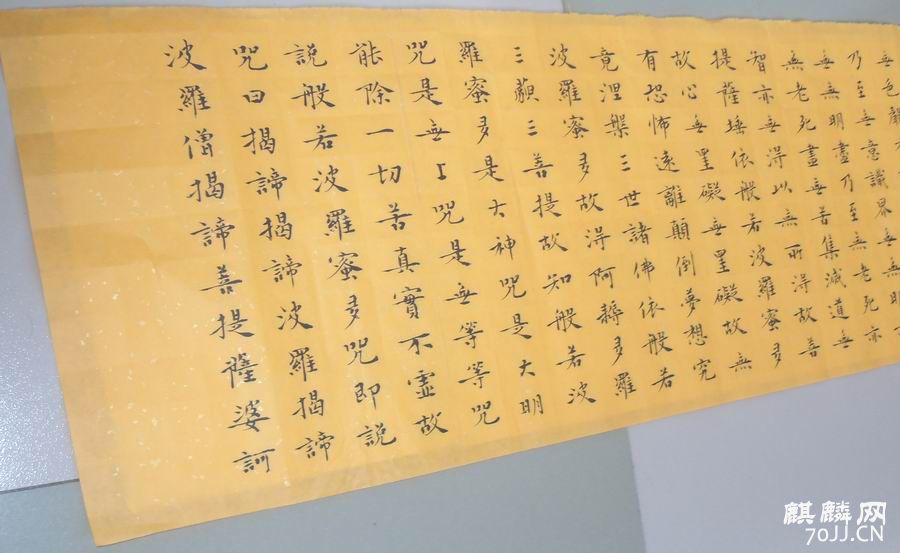 無色聲
乃至無意識界無無明亦
無無明盡乃至無老死亦
無老死盡無苦集滅道無
智亦無得以無所得故菩
提薩埵依般若波羅蜜多
故心無罣礙無罣礙故無
有恐怖遠離顛倒夢想究
竟涅槃三世諸佛依般若
波羅蜜多故得阿耨多羅
三藐三菩提故知般若波
羅蜜多是大神咒是大明
咒是無上咒是無等等咒
能除一切苦真實不虛故
說般若波羅蜜多咒即說
咒曰揭諦揭諦波羅揭諦
波羅僧揭諦菩提薩婆訶
麒麟网
70JJ.CN